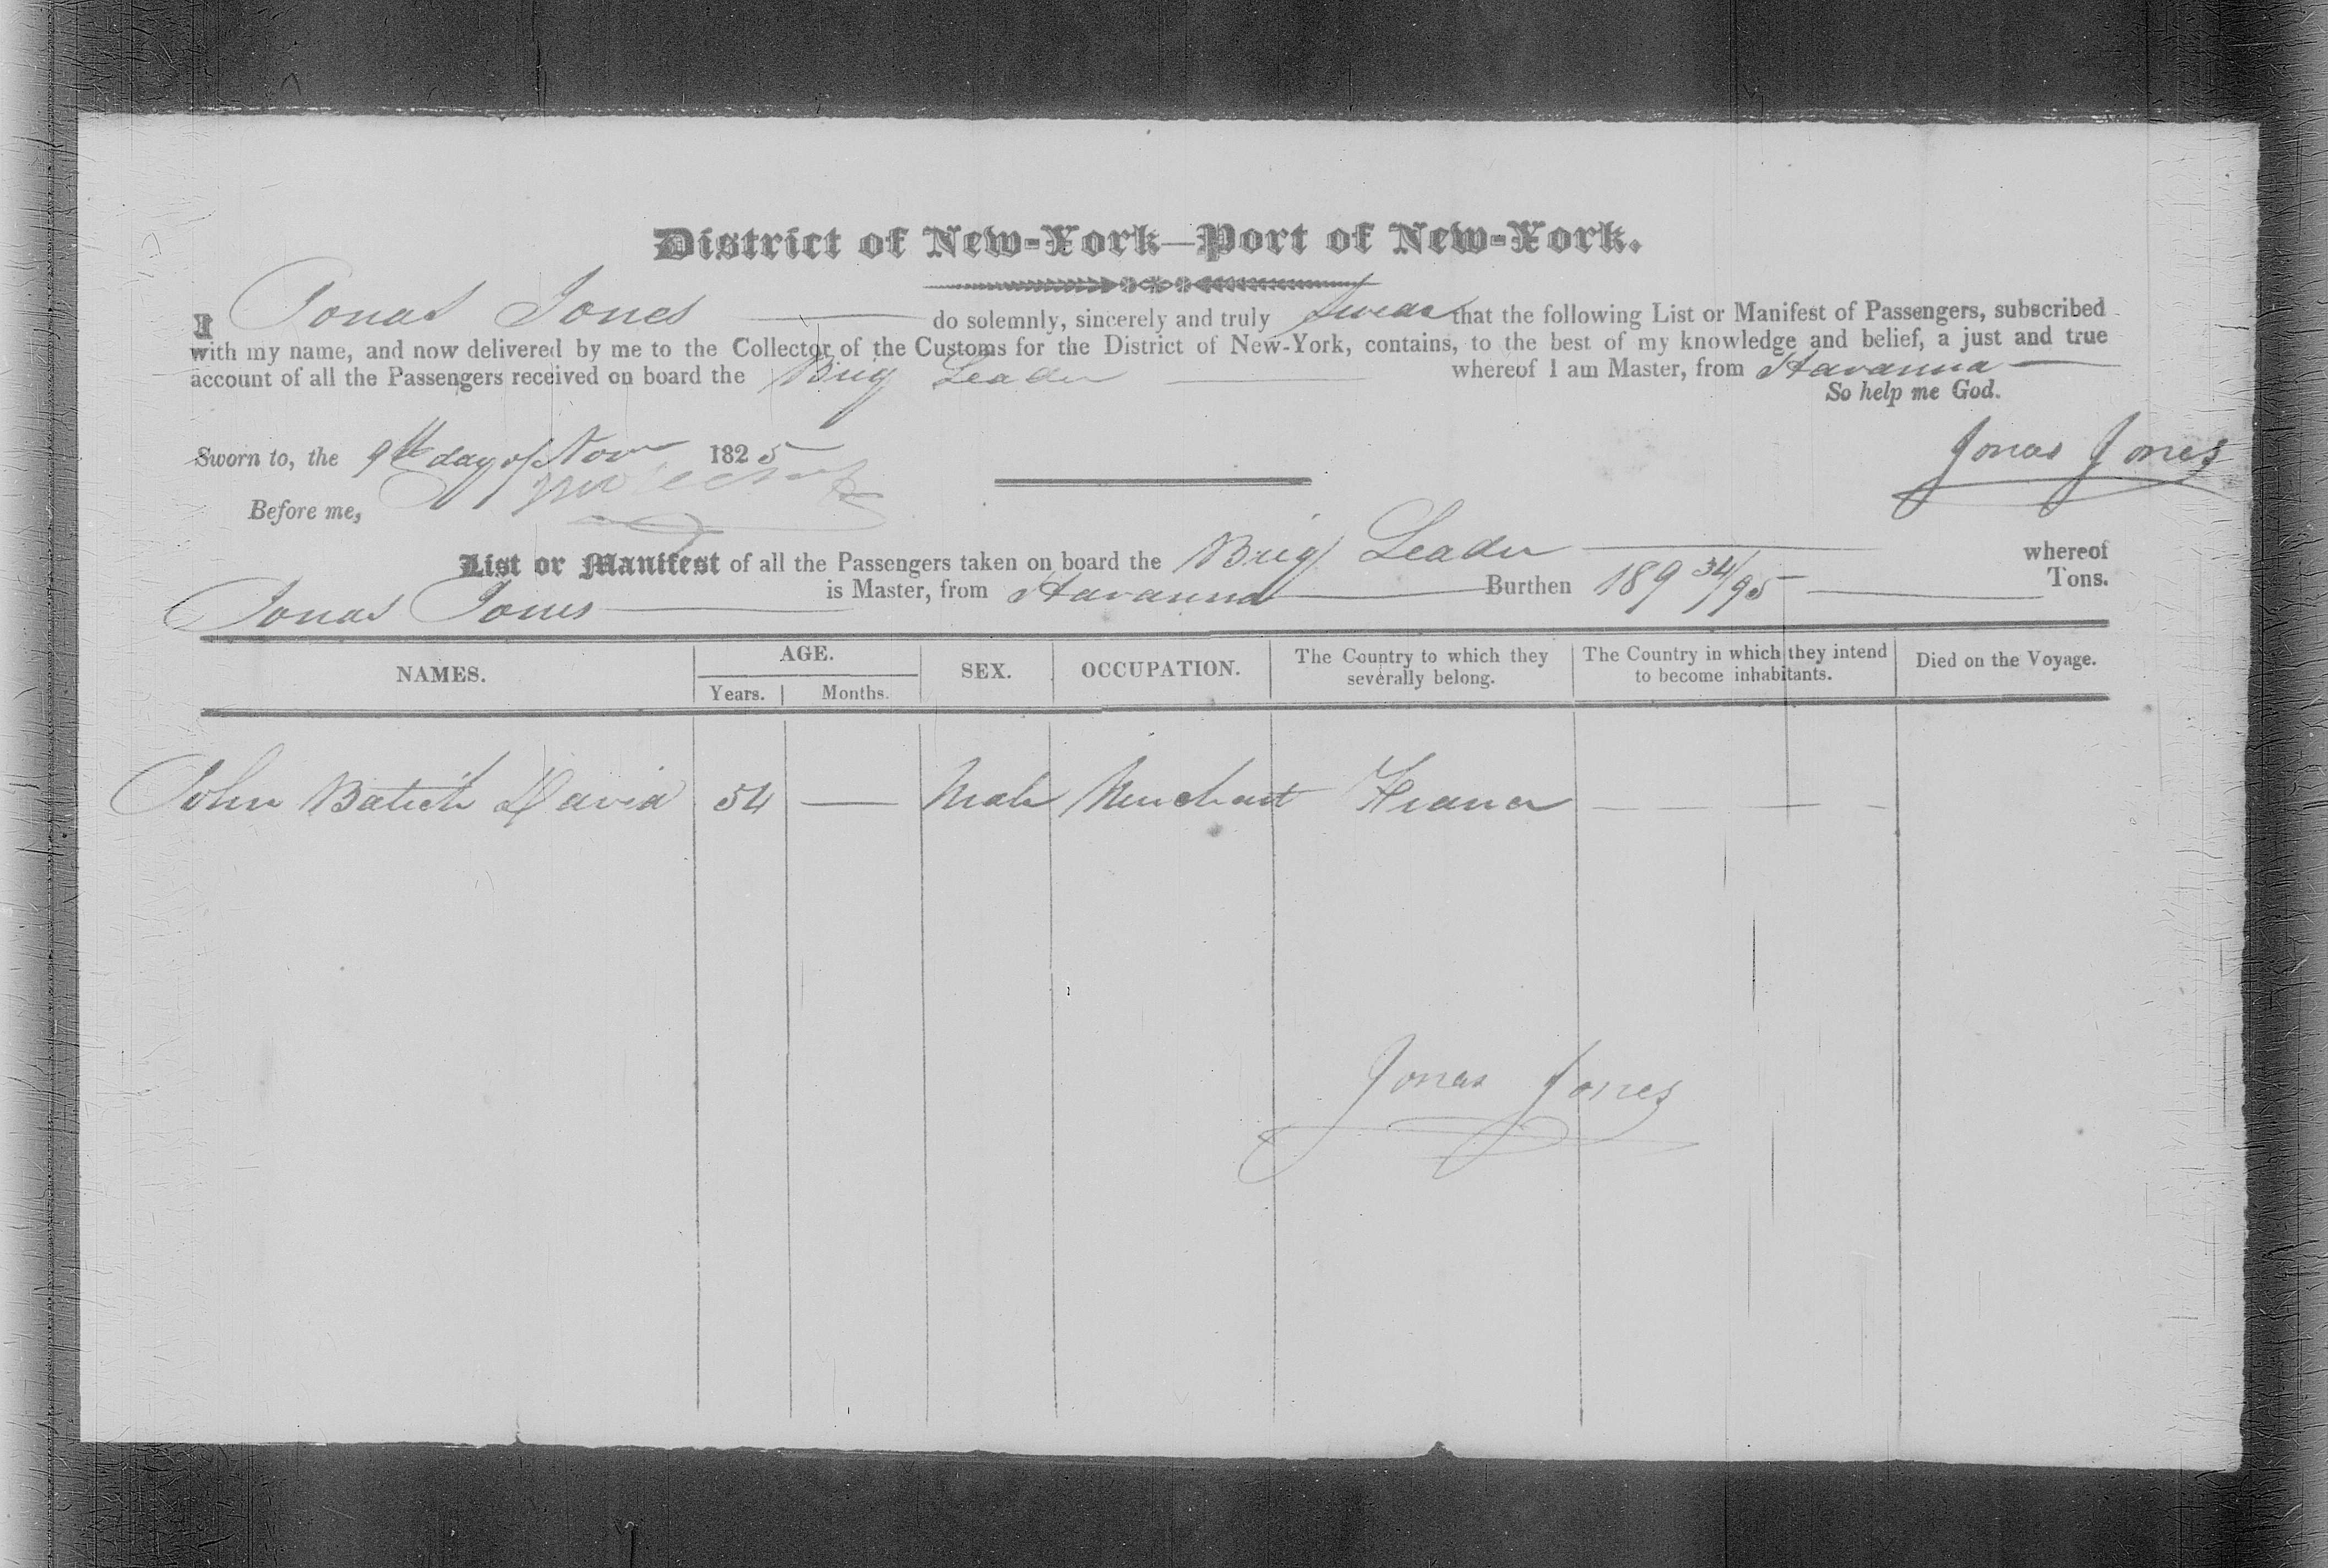 District of New-York—Port of New-York.
I Jonas Jones do solemnly, sincerely and truly swear that the following List or Manifest of Passengers, subscribed
with my name, and now delivered by me to the Collector of the Customs for the District of New-York, contains, to the best of my knowledge and belief, a just and true
account of all the Passengers received on board the Brig Leader whereof I am Master, from Havanna
So help me God.
Sworn to, the 9th day of Nov 1825
Jonas Jones
Before me,
List or Manifest of all the Passengers taken on board the Brig Leader whereof
Jonas Jones is Master, from Havanna Burthen 189 34/95 Tons.
NAMES. AGE. Years. Months. SEX. OCCUPATION. The Country to which they severally belong. The Country in which they intend to become inhabitants. Died on the Voyage.
John David 54 — Male Merchant France — — — —
Jonas Jones